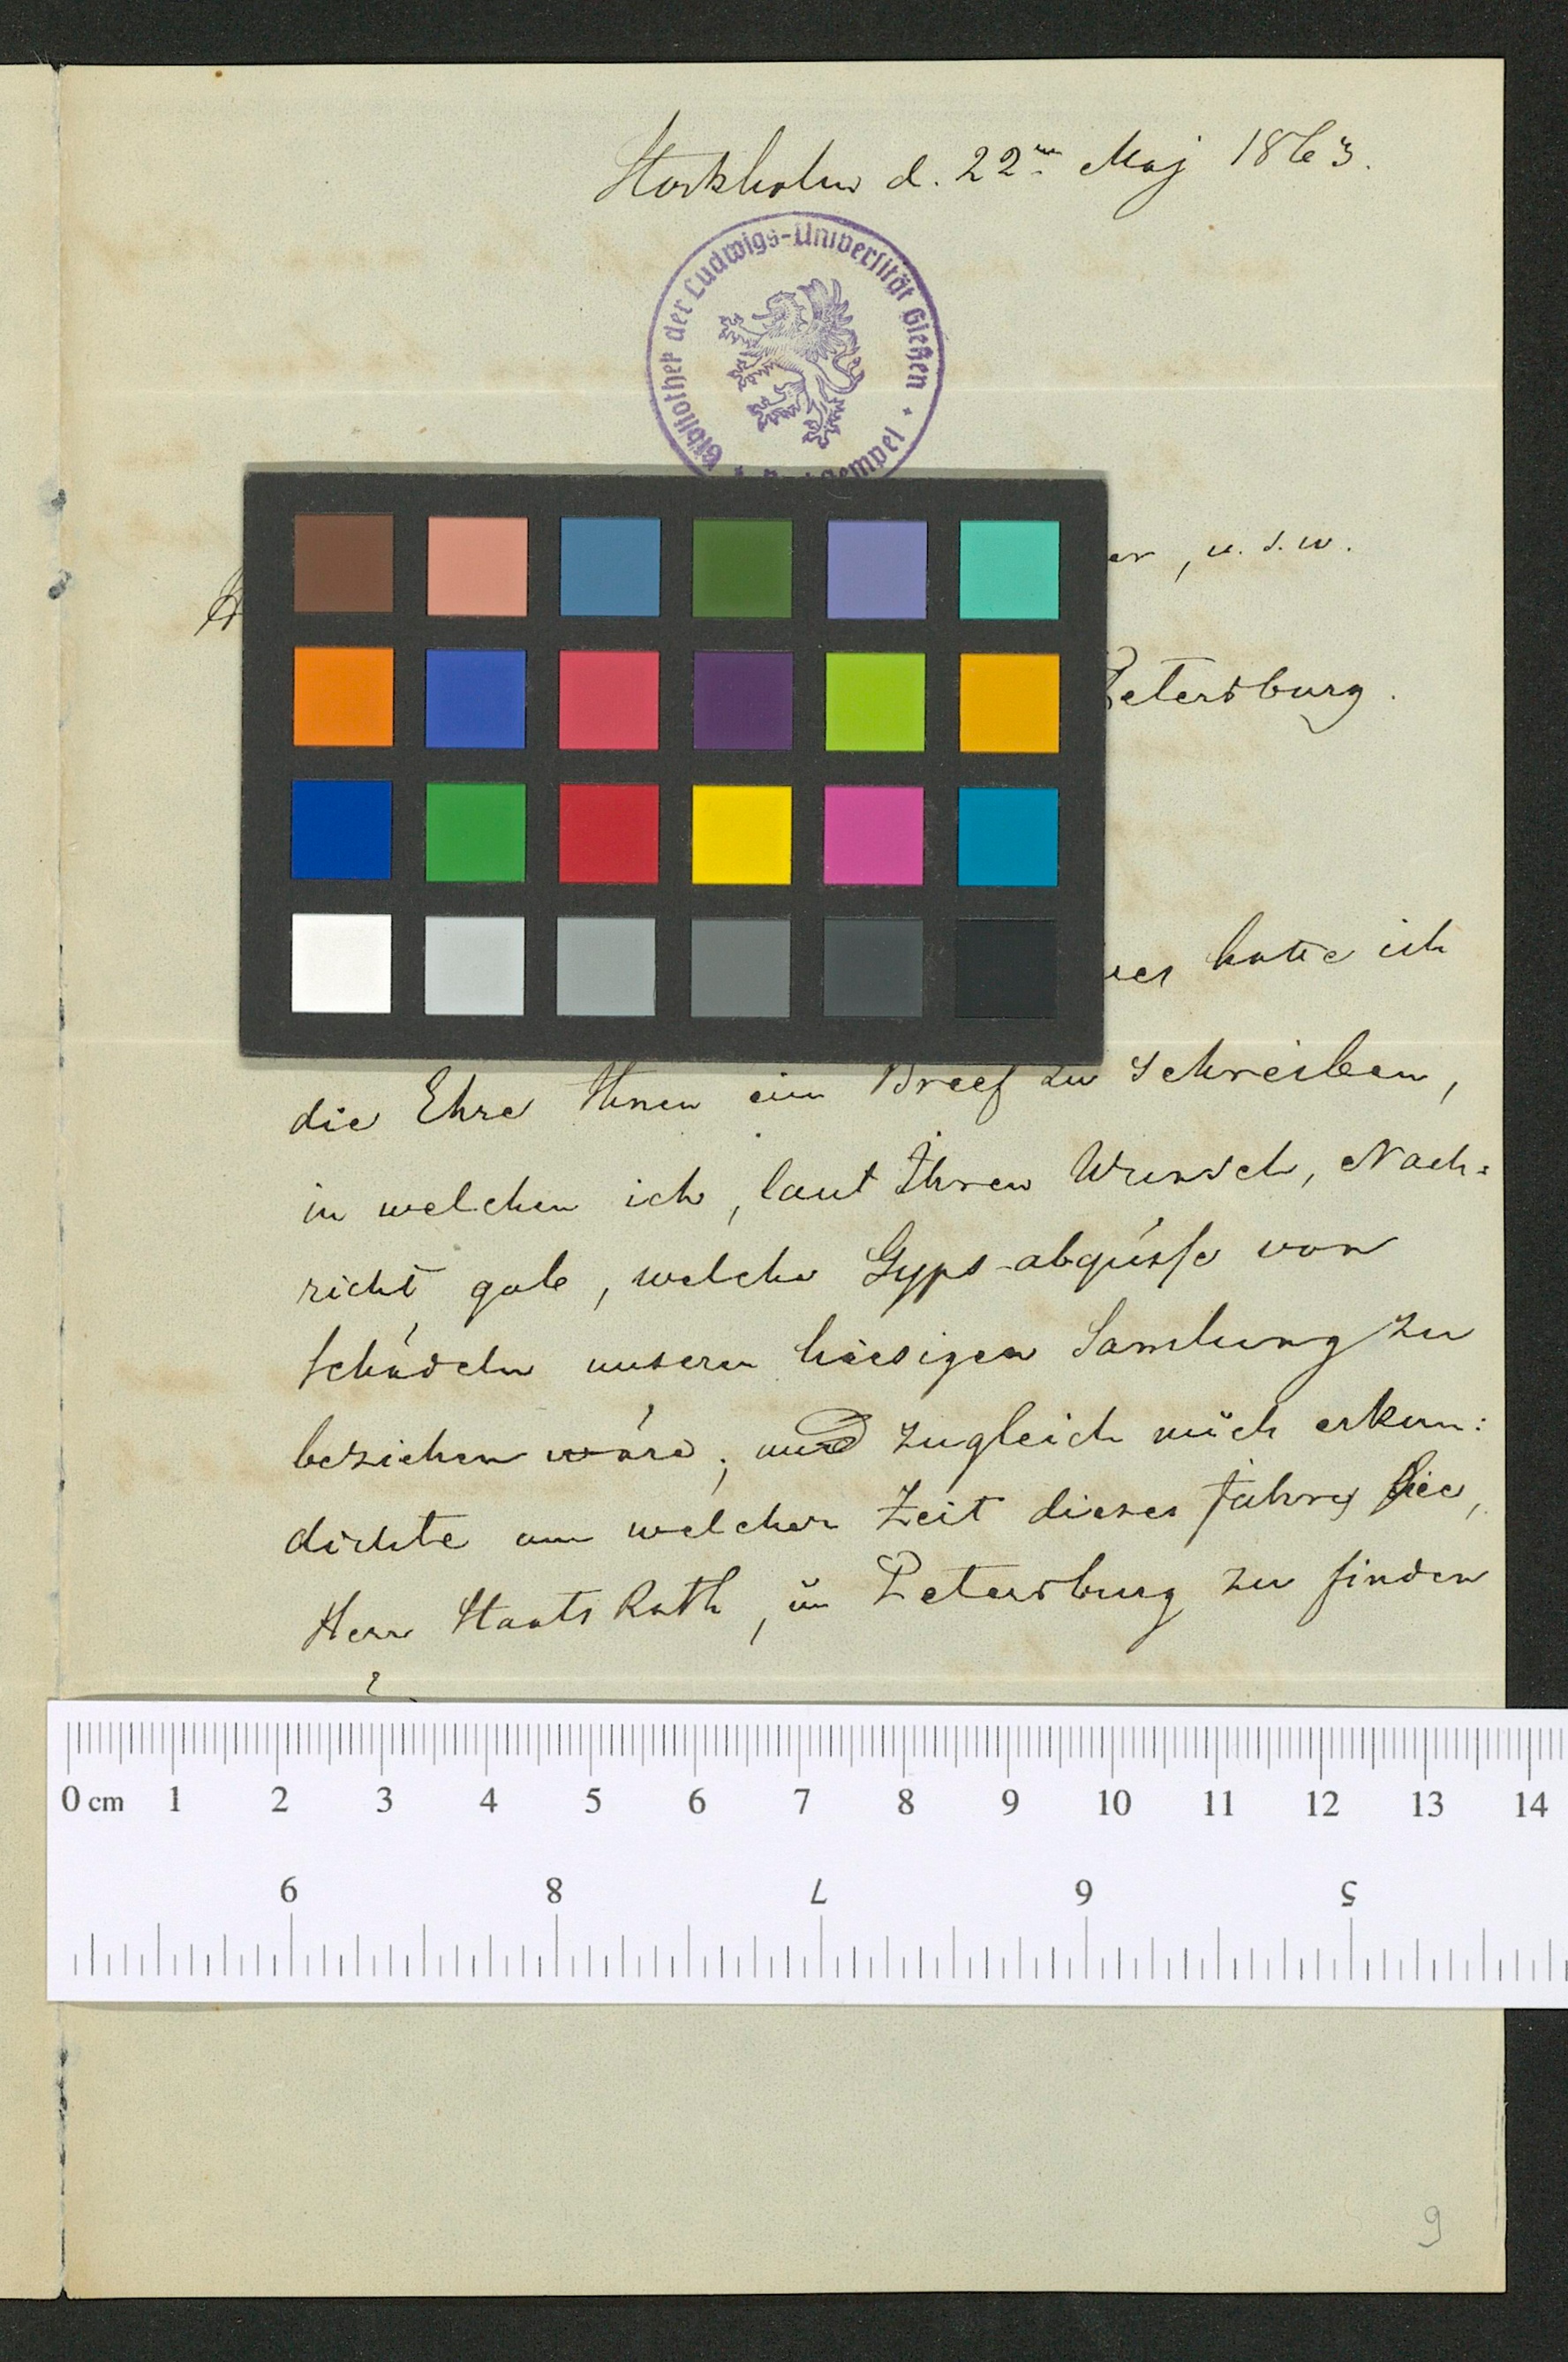 Stockholm d. 22n Maj 1863.
Bibliothek der Ludwigs-Universität Gießen
u. s. w.
Petersburg.
hatte ich
die Ehre Ihnen ein Breef zu schreiben,
in welchen ich, laut Ihren Wunsch, Nach=
richt gab, welche Gyps-abgüsse von
Schädeln unseren hiesigen Samlung zu
beziehen wäre; und zugleich mich erkun:
dichte um welcher Zeit dieses Jahres Sie,
Herr StaatsRath, in Petersburg zu finden
0 cm 1 2 3 4 5 6 7 8 9 10 11 12 13 14
9 8 7 6 5
9